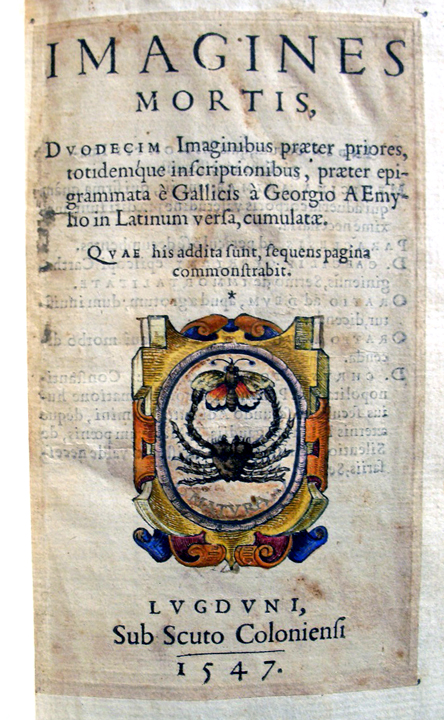 IMAGINES
MORTIS,
DVODECIM Imaginibus præter priores,
totidemque inſcriptionibus, præter epi-
grammata è Gallicis à Georgio AEmy-
lio in Latinum verſa, cumulatæ.
QVAE his addita ſunt, ſequens pagina
commonſtrabit.
*
MATVRA
LVGDVNI,
Sub Scuto Colonienſi
1547.